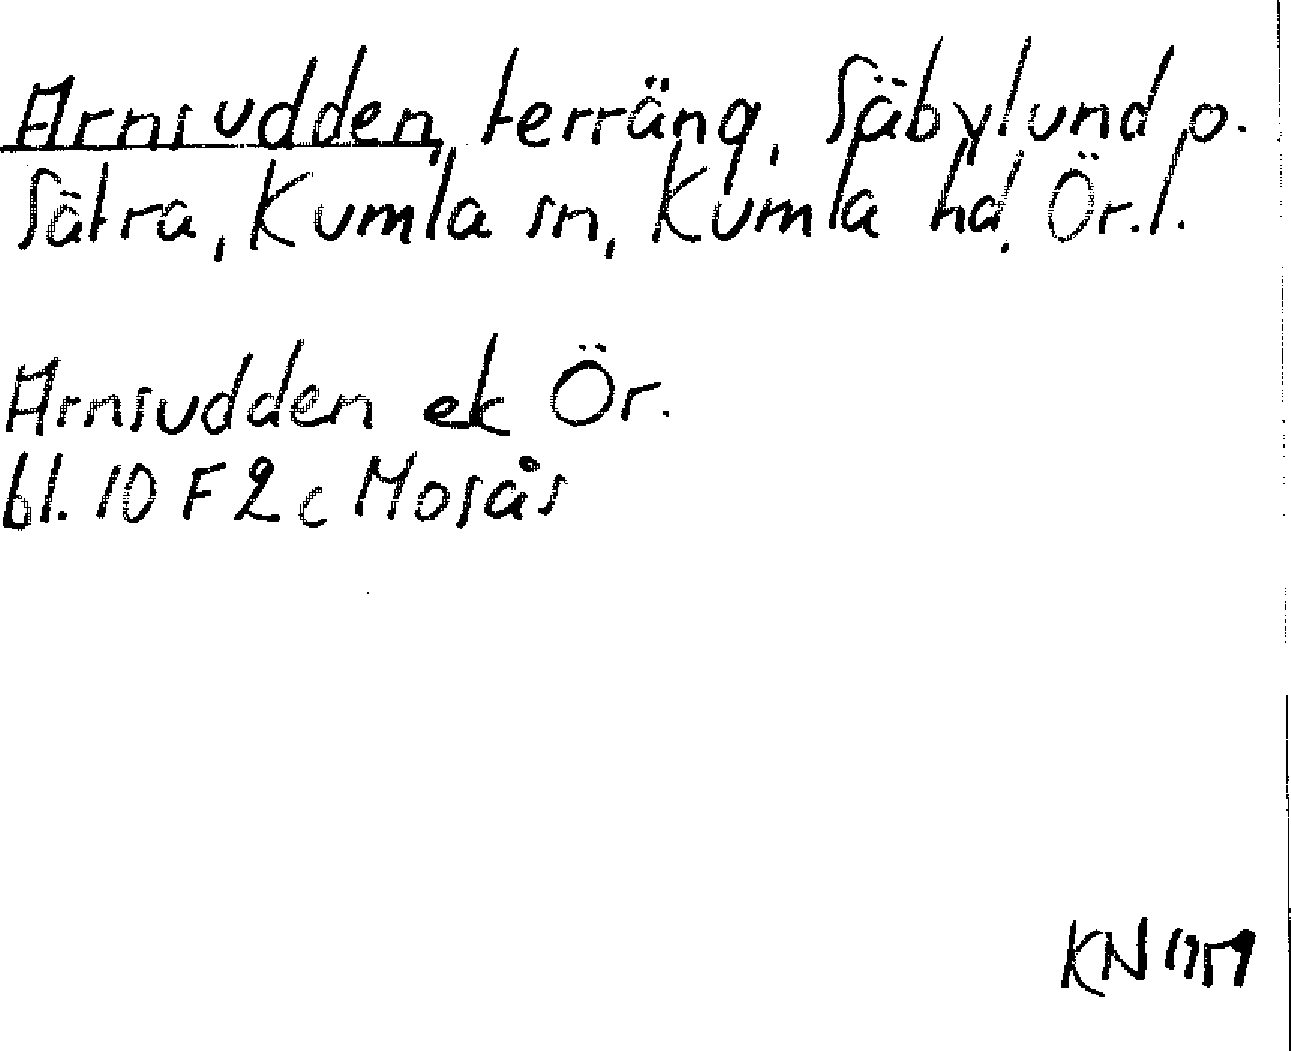 Arnsudden, terräng, Säbylund o.
Sätra, Kumla sn, Kumla hd, Ör.l.
Arnsudden ek Ör.
bl. 10 F 2 c Mosås
KN